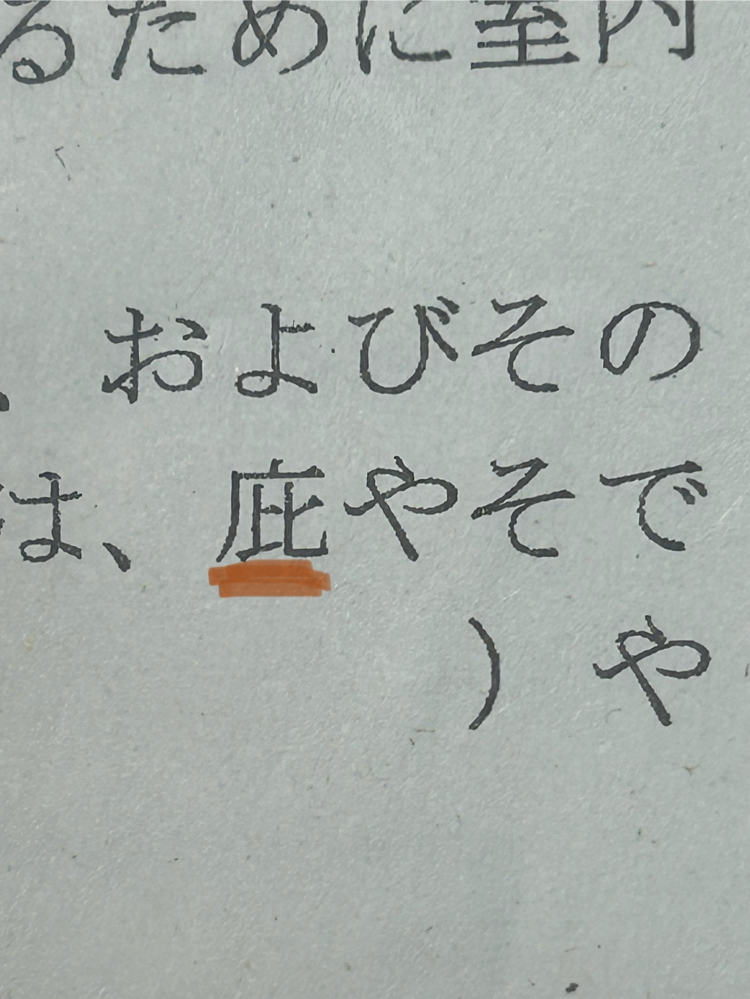 るために室内
、およびその
は、庇やそで
)や